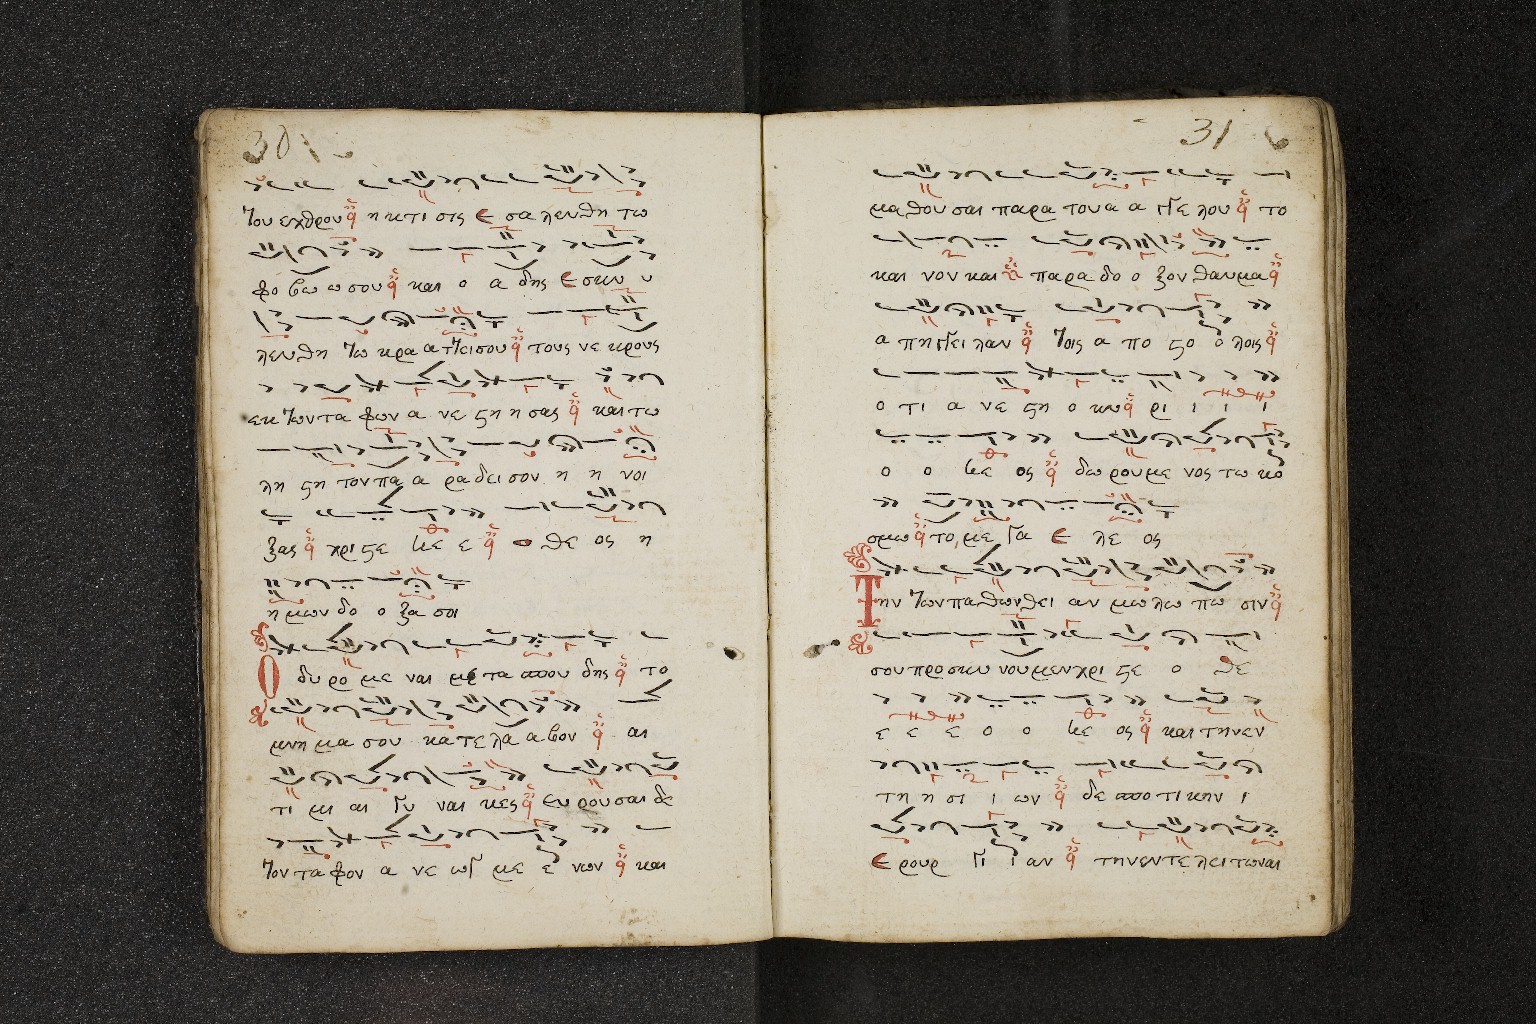 30
του εχθρου η κτι σις ε σα λευθη τω
φο βω ω σου και ο α δης ε σκυ υ
λευθη τω κρα α τει σου τους νε κρους
εκ των τα φων α νε ςη η σας και τω
λη ςη τον πα α ρα δει σον η η νοι
ξας χρι ςε κε ε ο θε ος η
η μων δο ο ξα σοι
Ο δυ ρο με ναι με τα σπου δης το
μνη μα σου κα τε λα α βον αι
τι μι αι γυ ναι κες ευ ρου σαι δε
τον τα φον α νε ωγ με ε νον και
31
μα θου σαι παρα του α α γγε λου το
και νον και παρα δο ο ξον θαυμα
α πη γγει λαν τοις α πο ςο ο λοις
ο τι α νε ςη ο κυ ρι ι ι ι
ο ο κε ος δω ρου με νος τω κο
σμω το με γα ε λε ος
Την των πα θων θει αν μω λω πω σιν
σου προ σκυ νου μεν χρι ςε ο θε
ε ε ε ο ο κε ος και την εν
τη η σι ι ων δε σπο τι κην ι
ε ρουρ γι ι αν την εν τε λει των αι